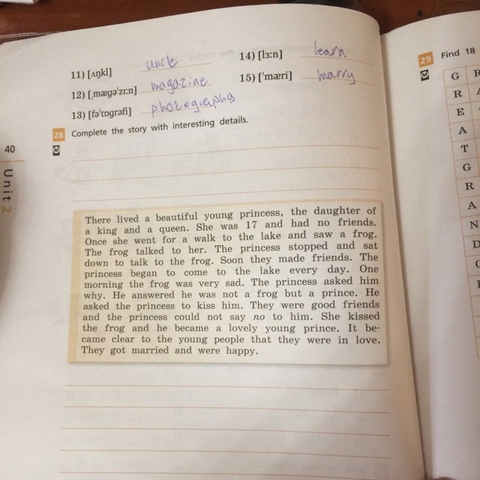 11) [ʌŋkl] uncle
14) [lɜːn] learn
12) [ˌmæɡəˈziːn] magazine
15) [ˈmæri] marry
13) [fəˈtɒɡrəfi] photography
28 Complete the story with interesting details.
40
Unit 2
There lived a beautiful young princess, the daughter of
a king and a queen. She was 17 and had no friends.
Once she went for a walk to the lake and saw a frog.
The frog talked to her. The princess stopped and sat
down to talk to the frog. Soon they made friends. The
princess began to come to the lake every day. One
morning the frog was very sad. The princess asked him
why. He answered he was not a frog but a prince. He
asked the princess to kiss him. They were good friends
and the princess could not say no to him. She kissed
the frog and he became a lovely young prince. It be-
came clear to the young people that they were in love.
They got married and were happy.
29 Find 18
G
R
E
A
T
G
R
A
N
D